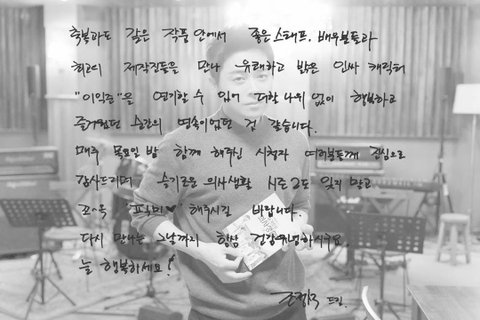 축복과도 같은 작품 안에서 좋은 스태프, 배우분들과
최고의 제작진들을 만나 유쾌하고 밝은 인싸 캐릭터
"이익준"을 연기할 수 있어 더할 나위 없이 행복하고
즐거웠던 순간의 연속이었던 것 같습니다.
매주 목요일 밤 함께 해주신 시청자 여러분들께 진심으로
감사드리며 슬기로운 의사생활 시즌2도 잊지 말고
꼬~옥 해주시길 바랍니다
다시 만나는 그날까지 항상 건강
늘 행복하세요!
조정석 드림.